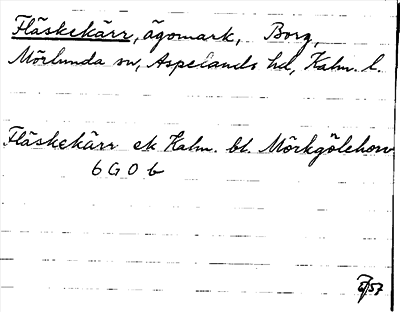 Fläskekärr, ägomark, Borg,
Mörlunda sn, Aspelands hd, Kalm. l.
Fläskekärr ek Kalm. bl. Mörkgölehorv
6 G 0 b
/57